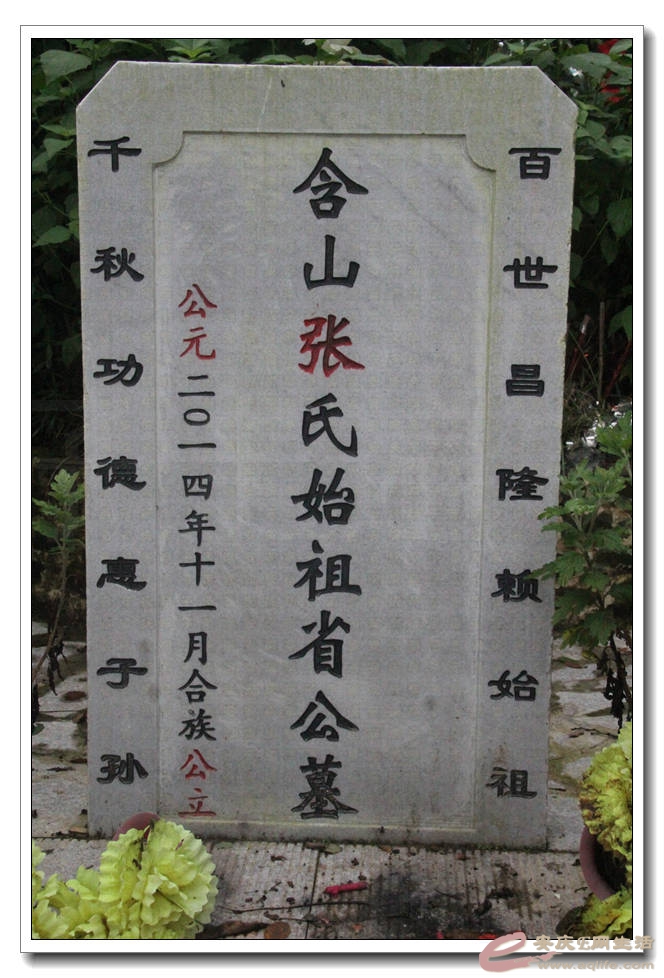 百世昌隆赖始祖
含山张氏始祖省公墓
公元二〇一四年十一月合族公立
千秋功德惠子孙
安庆E网生活
www.aqlife.com